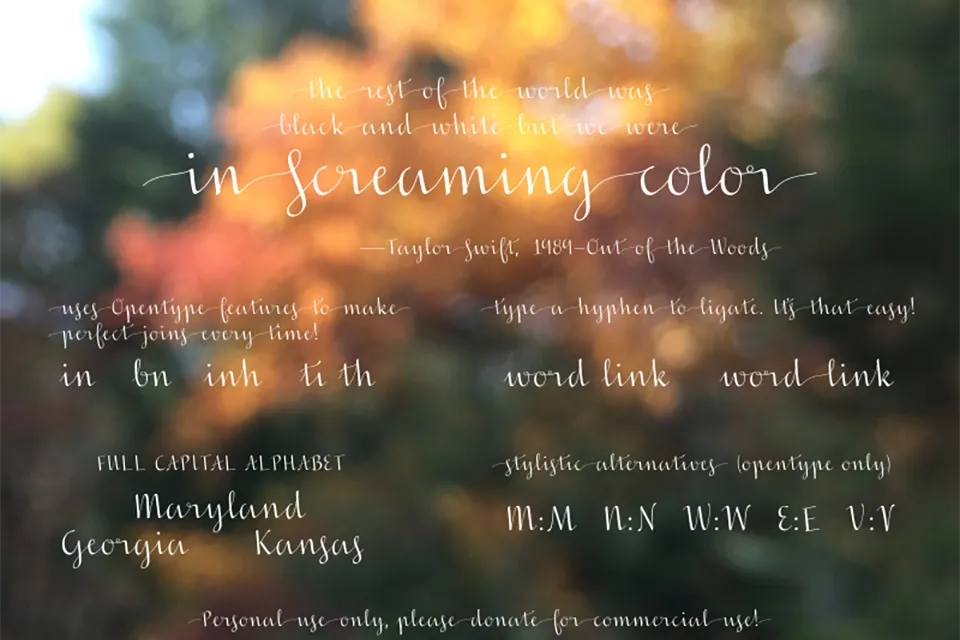 the rest of the world was
black and white but we were
in screaming color
—Taylor Swift, 1989-Out of the Woods
uses Opentype features to make
perfect joins every time!
type a hyphen to ligate. It's that easy!
in bn inh ti th
word link word-link
FULL CAPITAL ALPHABET
Maryland
Georgia Kansas
stylistic alternatives (opentype only)
M:M N:N W:W E:E V:V
Personal use only, please donate for commercial use!